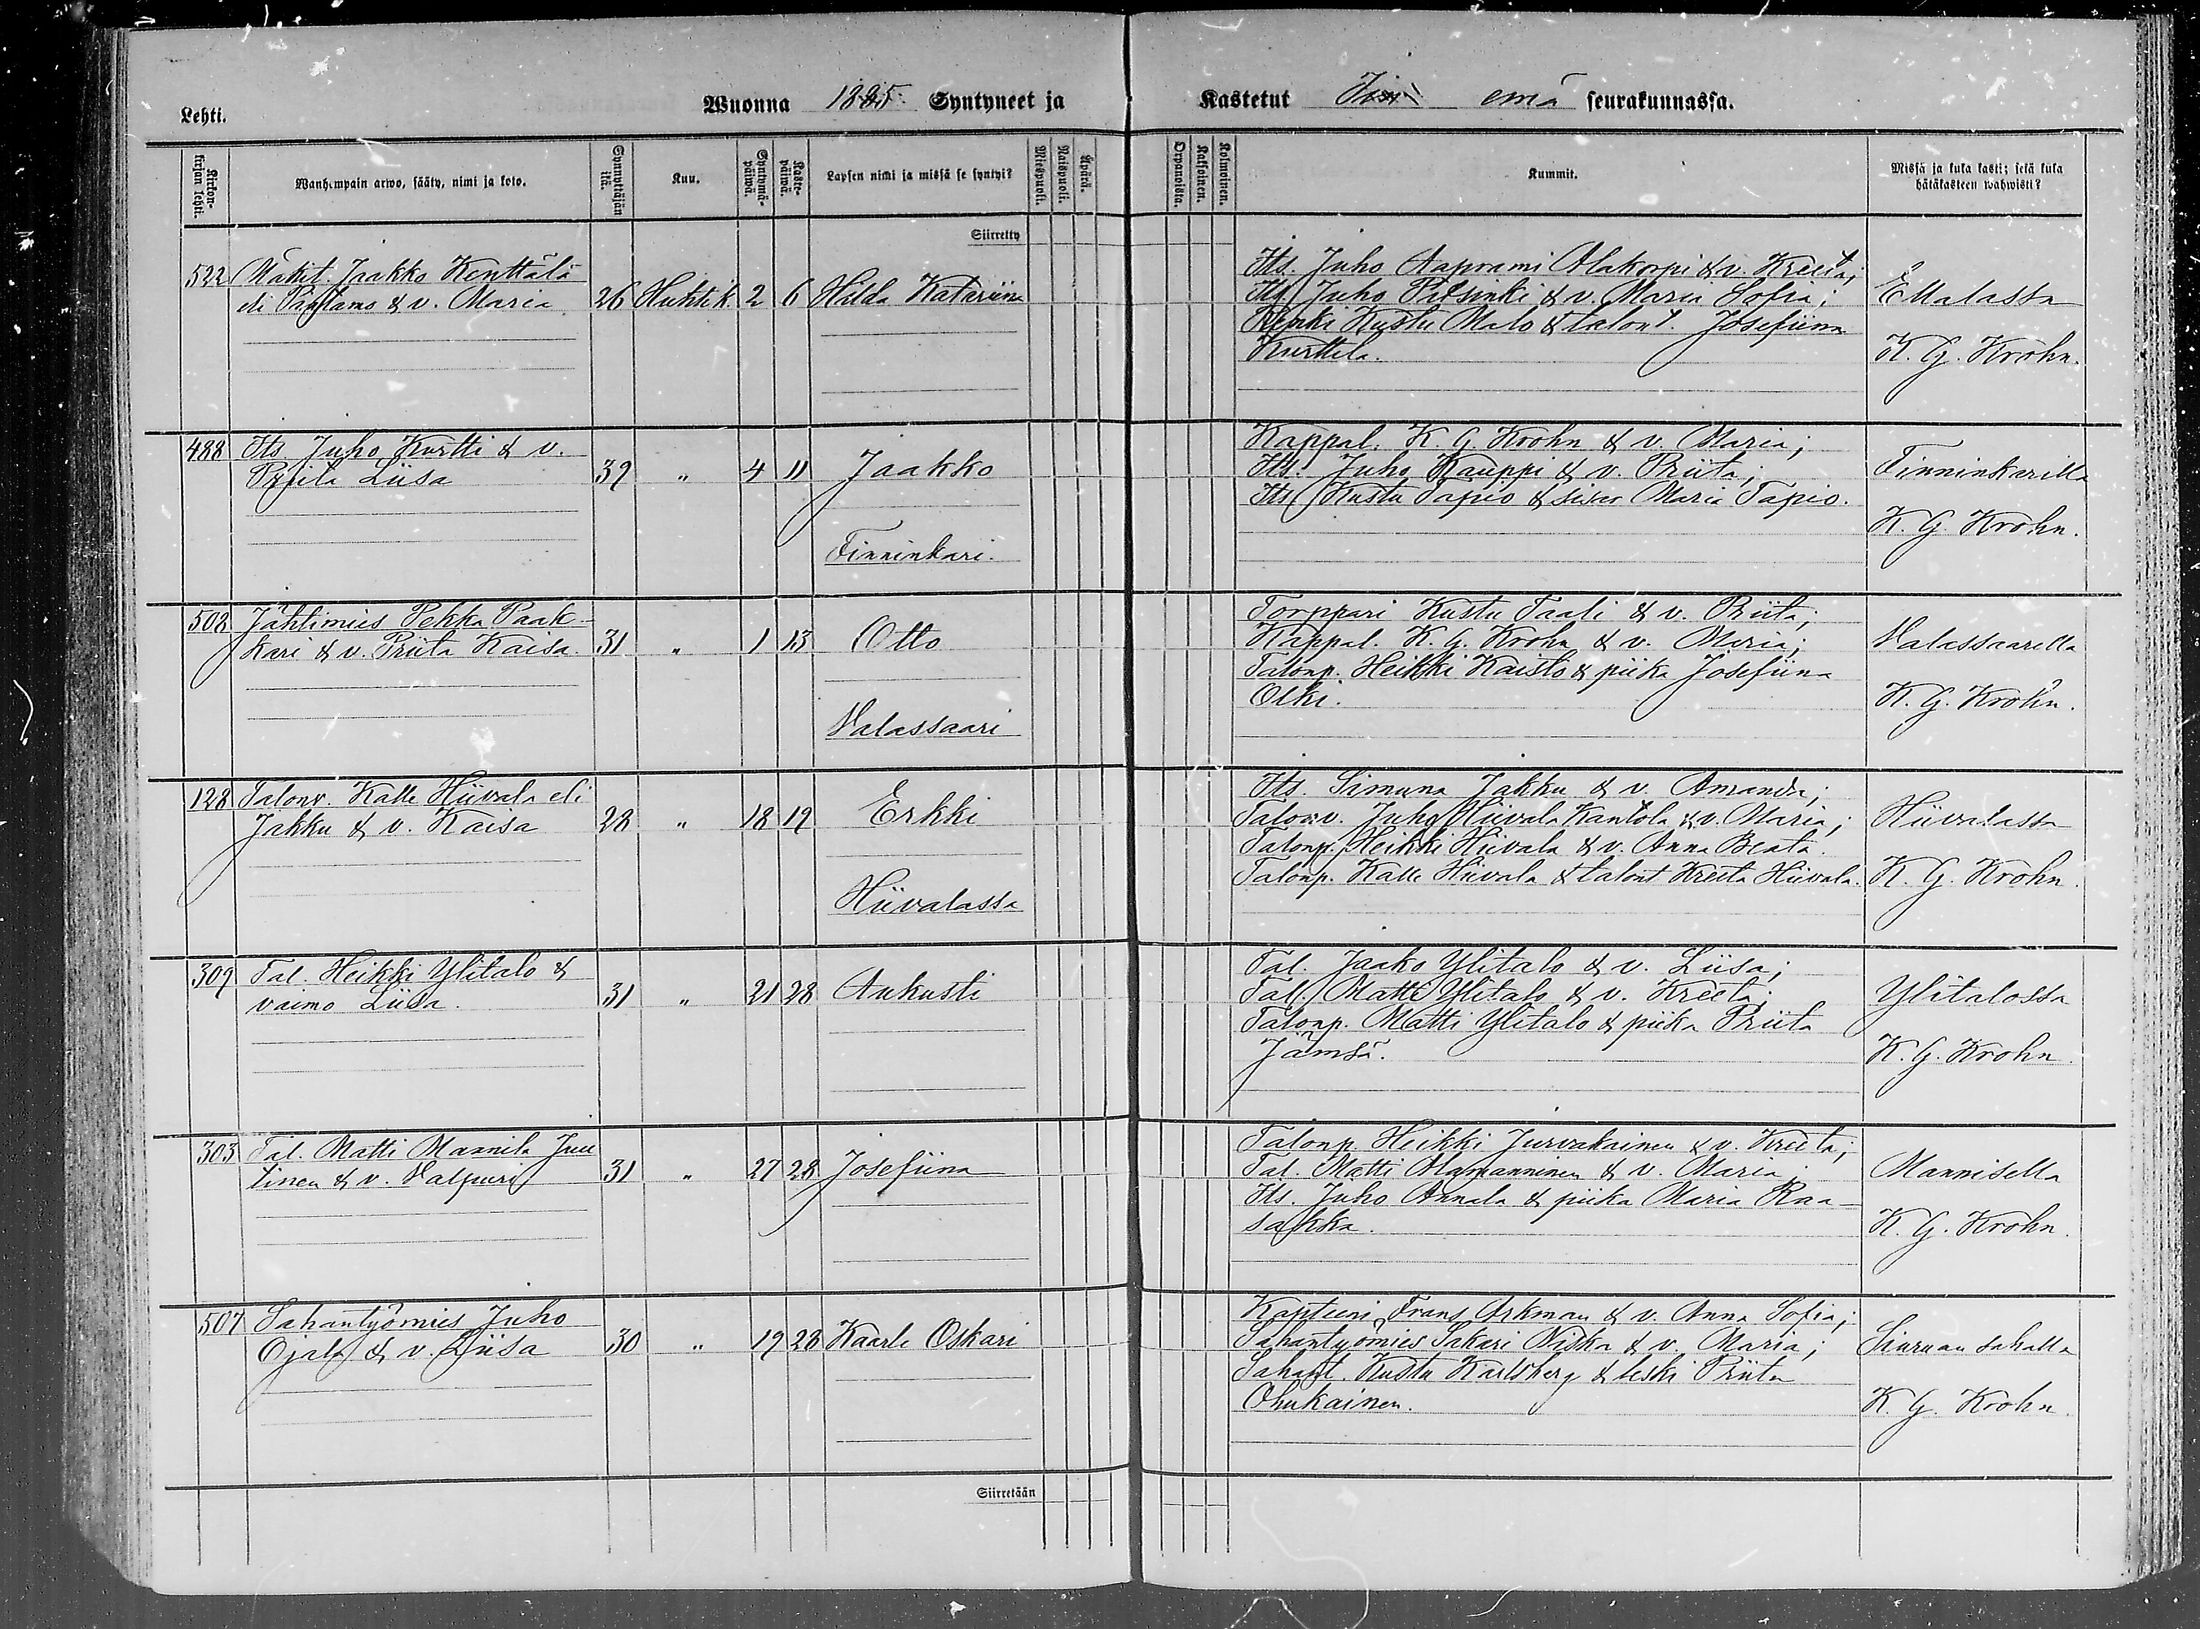 Lehti.
Wuonna 1885 Syntyneet ja
Kastetut Iin emä seurakunnassa.
Kirkonkirjan lehti.
Wanhempain arwo, sääty, nimi ja koto.
Synnyttäjän ikä.
Kuu.
Syntymäpäiwä.
Kastepäiwä.
Lapsen nimi ja missä se syntyi?
Miespuoli.
Naispuoli.
Äpärä.
Orpanoista.
Kaksoinen.
Kolmoinen.
Kummit.
Missä ja kuka kasti; sekä kuka
hätäkasteen wahwisti?
Siirretty
522 Mäkit. Jaakko Kenttälä
eli & v. Maria 26 Huhtik. 2 6 Hilda Katariina
Its. Juho Aaprami Alakorpi & v. Kreeta;
Its. Juho Pilsinki & v. Maria Sofia;
Renki Kustu Malo & talont. Josefiina
Kurttila.
K. G. Krohn.
488 Its. Juho Kurtti & v.
Priita Liisa 39 " 4 11 Jaakko
Finninkari.
Kappal. K. G. Krohn & v. Maria;
Its. Juho Kauppi & v. Priita;
Its. Kustu Tapio & sisar Maria Tapio.
Finninkarilla
K. G. Krohn.
508 Jahtimies Pekka Paak-
kari & v. Priita Kaisa. 31 " 1 13 Otto
Halassaari
Torppari Kustu Taali & v. Priita;
Kappal. K. G. Krohn & v. Maria;
Talonp. Heikki Kaisto & piika Josefiina
Olki.
Halassaarella
K. G. Krohn.
128 Talonv. Kalle Hiivala eli
Jakku & v. Kaisa 28 " 18 19 Erkki
Hiivalassa
Its. Simuna Jakku & v. Amanda;
Talonv. Juho Hiivala Kantola & v. Maria;
Talonp. Heikki Hiivala & v. Anna Beata.
Talonp. Kalle Hiivala & talont Kreeta Hiivala.
Hiivalassa
K. G. Krohn.
309 Tal. Heikki Ylitalo &
vaimo Liisa. 31 " 21 28 Aukusti
Tal. Jaako Ylitalo & v. Liisa;
Tal. Matti Ylitalo & v. Kreeta;
Talonp. Matti Ylitalo & piika Priita
Jämsä.
Ylitalossa
K. G. Krohn.
303 Tal. Matti Mannila Juu
tinen & v. Valpuri 31 " 27 28 Josefiina
Talonp. Heikki Jurvakainen & v. Kreeta;
Tal. Matti Alamanninen & v. Maria
Its. Juho Annala & piika Maria Raa-
sakka.
Mannisella
K. G. Krohn.
507 Sahantyömies Juho
Ojala & v. Liisa 30 " 19 28 Kaarle Oskari
Kapteeni Frans Arkman & v. Anna Sofia;
Sahantyömies Sakari Niska & v. Maria;
Sahant. Kustu Karlsberg & leski Priita
Ohukainen.
Siuruan sahalla
K. G. Krohn.
Siirretään